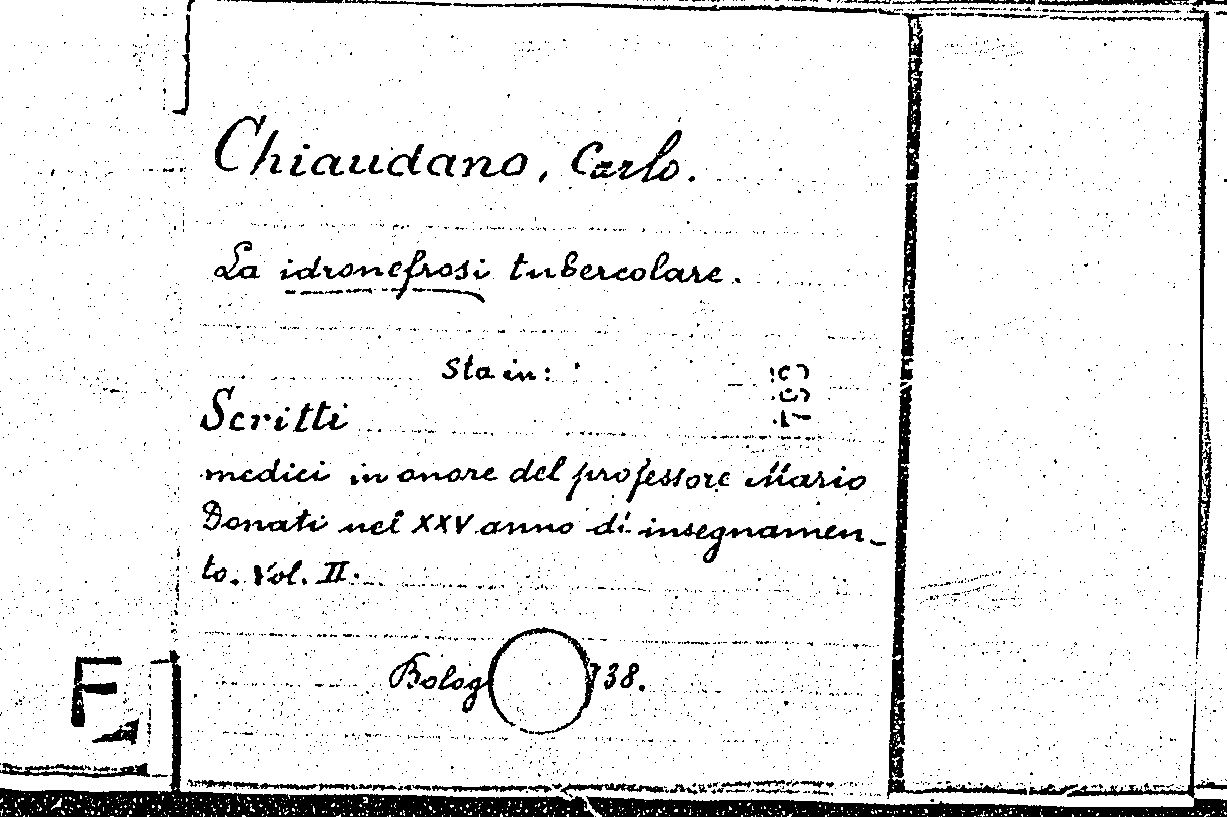 Chiaudano, Carlo.
La idronefrosi tubercolare.
Sta in:
Scritti
medici in onore del professore Mario
Donati nel XXV anno di insegnamen-
to. Vol. II.
Bolog 938.
F